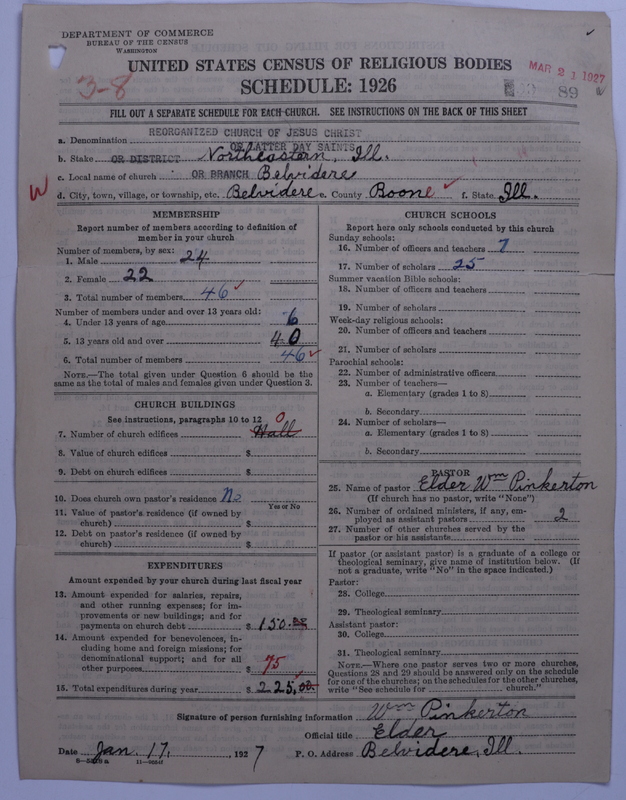 DEPARTMENT OF COMMERCE
BUREAU OF THE CENSUS
WASHINGTON
UNITED STATES CENSUS OF RELIGIOUS BODIES
SCHEDULE: 1926
3-8
MAR 21 1927
89
FILL OUT A SEPARATE SCHEDULE FOR EACH CHURCH. SEE INSTRUCTIONS ON THE BACK OF THIS SHEET
a. Denomination REORGANIZED CHURCH OF JESUS CHRIST
OF LATTER DAY SAINTS
b. Stake OR DISTRICT Northeastern, Ill.
c. Local name of church OR BRANCH Belvidere
W
d. City, town, village, or township, etc. Belvidere e. County Boone f. State Ill.
MEMBERSHIP
Report number of members according to definition of
member in your church
Number of members, by sex:
1. Male 24
2. Female 22
3. Total number of members 46
Number of members under and over 13 years old:
4. Under 13 years of age 6
5. 13 years old and over 40
6. Total number of members 46
NOTE.—The total given under Question 6 should be
same as the total of males and females given under Question 3.
CHURCH BUILDINGS
See instructions, paragraphs 10 to 12
7. Number of church edifices Hall 0
8. Value of church edifices $
9. Debt on church edifices $
10. Does church own pastor's residence No
Yes or No
11. Value of pastor's residence (if owned by
church) $
12. Debt on pastor's residence (if owned by
church) $
EXPENDITURES
Amount expended by your church during last fiscal year
13. Amount expended for salaries, repairs,
and other running expenses; for im-
provements or new buildings; and for
payments on church debt $ 150.00
14. Amount expended for benevolences, in-
cluding home and foreign missions; for
denominational support; and for all
other purposes $ 75
15. Total expenditures during year $ 225.00
CHURCH SCHOOLS
Report here only schools conducted by this church
Sunday schools:
16. Number of officers and teachers 7
17. Number of scholars 25
Summer vacation Bible schools:
18. Number of officers and teachers
19. Number of scholars
Week-day religious schools:
20. Number of officers and teachers
21. Number of scholars
Parochial schools:
22. Number of administrative officers
23. Number of teachers—
a. Elementary (grades 1 to 8)
b. Secondary
24. Number of scholars—
a. Elementary (grades 1 to 8)
b. Secondary
PASTOR
25. Name of pastor Elder Wm Pinkerton
(If church has no pastor, write "None")
26. Number of ordained ministers, if any, em-
ployed as assistant pastors 2
27. Number of other churches served by the
pastor or his assistants
If pastor (or assistant pastor) is a graduate of a college or
theological seminary, give name of institution below. (If
not a graduate, write "No" in the space indicated.)
Pastor:
28. College
29. Theological seminary
Assistant pastor:
30. College
31. Theological seminary
NOTE.—Where one pastor serves two or more churches,
Questions 28 and 29 should be answered only on the schedule
for one of the churches; on the schedules for the other churches,
write "See schedule for church."
Signature of person furnishing information Wm Pinkerton
Official title Elder
Date Jan. 17, 1927 P. O. Address Belvidere, Ill.